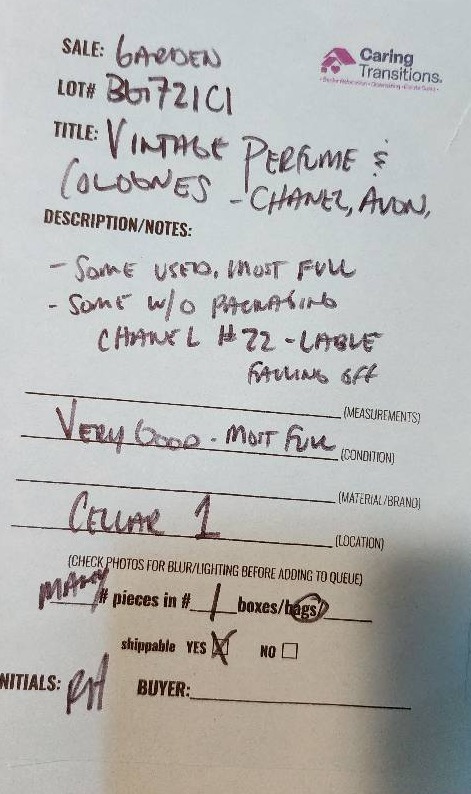 SALE: GARDEN
Caring Transitions®
LOT# BG1721C1
TITLE: VINTAGE PERFUME &
COLOGNES - CHANEL, AVON,
DESCRIPTION/NOTES:
- SOME USED, MOST FULL
- SOME W/O PACKAGING
CHANEL #22 - LABLE
FALLING OFF
(MEASUREMENTS)
VERY GOOD - MOST FULL (CONDITION)
(MATERIAL/BRAND)
CELLAR 1 (LOCATION)
(CHECK PHOTOS FOR BLUR/LIGHTING BEFORE ADDING TO QUEUE)
MANY # pieces in # 1 boxes/bags
shippable YES X NO
NITIALS: RH BUYER: